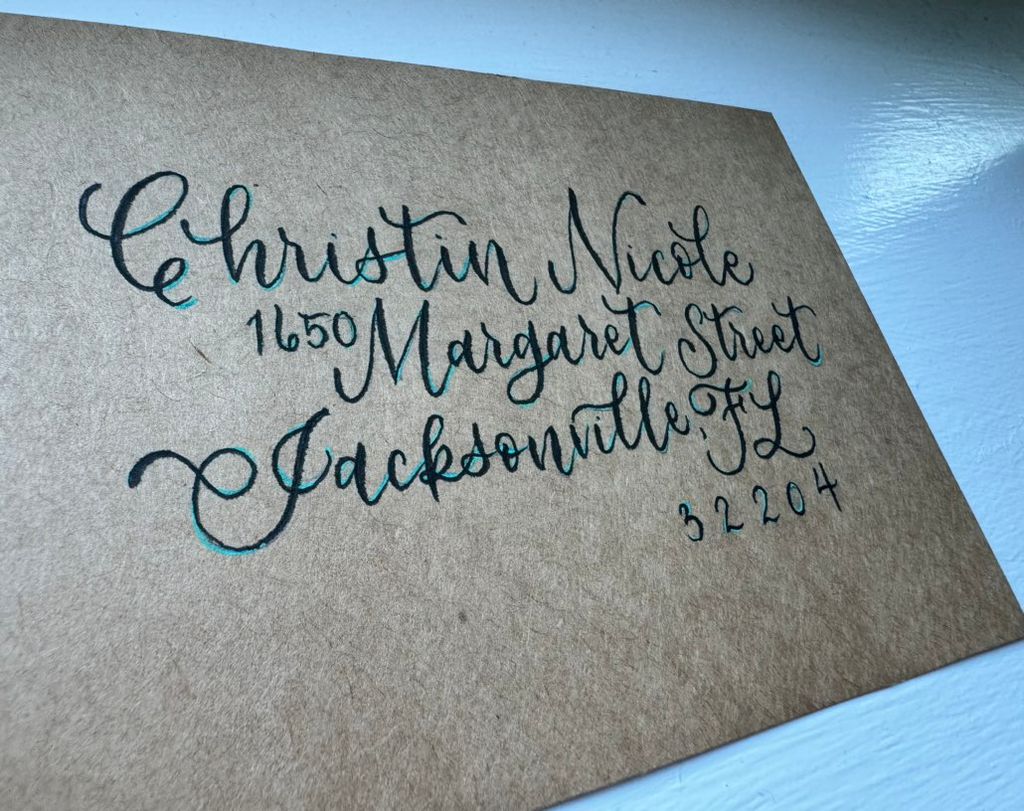 Christin Nicole
1650 Margaret Street
Jacksonville, FL
32204